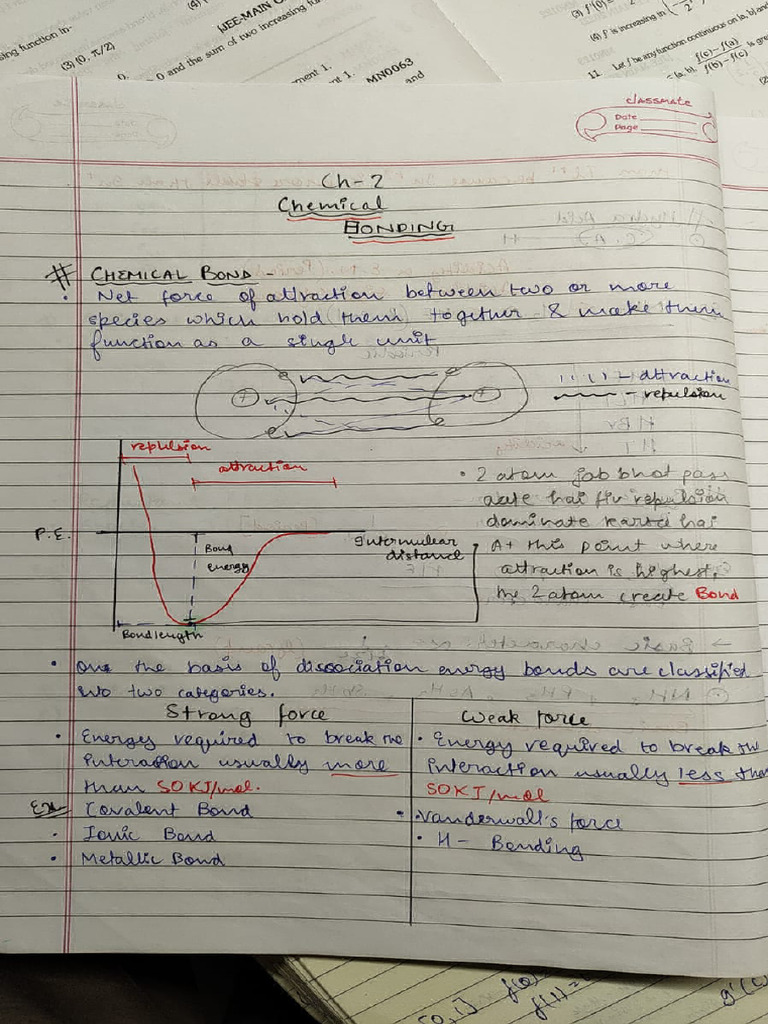 sing function in-
(3) (0, π/2)
(4)
[JEE-MAIN O
0 and the sum of two increasing fu
ment 1.
nt 1. MN0063
and
(3) f'(0)=
(4) f' is increasing in
11. Let f be any function continuous on [a, b] and
(a, b), f(c) - f(a) / f(b) - f(c) is gre
classmate
Date
Page
Ch-2
Chemical
BONDING
# CHEMICAL BOND
• Net force of attraction between two or more
species which hold (them) together & make them
function as a single unit
ı ı ı ı - attraction
- repulsion
repulsion
attraction
P.E.
Bond
energy
Internuclear
distance
Bond length
• 2 atom jab bhot pass
aate hai fir repulsion
dominate karta hai
At this point where
attraction is highest,
the 2 atom create Bond
• One the basis of dissociation energy bonds are classified
into two categories.
Strong force
• Energy required to break the
interaction usually more
than 50 KJ/mol.
Ex Covalent Bond
• Ionic Bond
• Metallic Bond
Weak force
• Energy required to break the
interaction usually less than
50 KJ/mol
• Vanderwall's force
• H- Bonding
f(0)
f(1) =
g'(c)